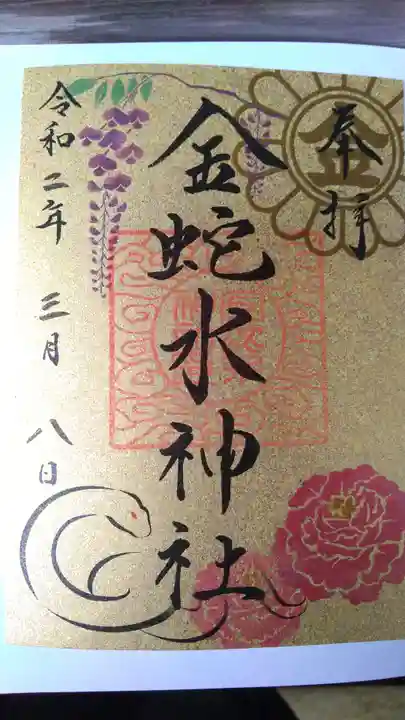 奉拝
金
金蛇水神社
令和二年 三月 八日